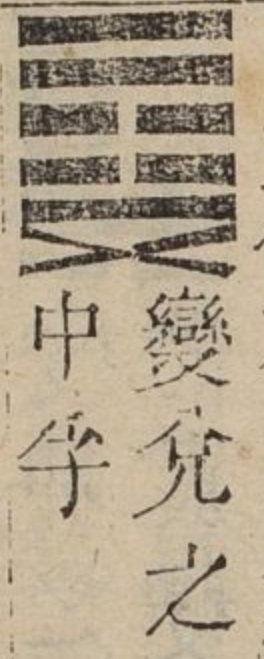 變兌之
中孚